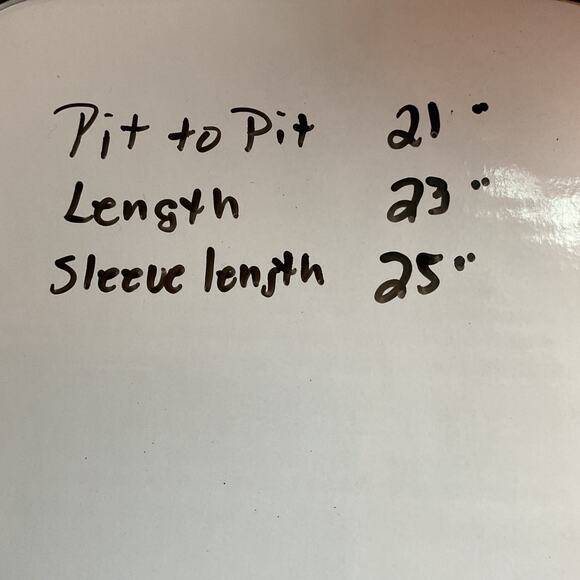 Pit to Pit 21"
Length 23"
Sleeve length 25"